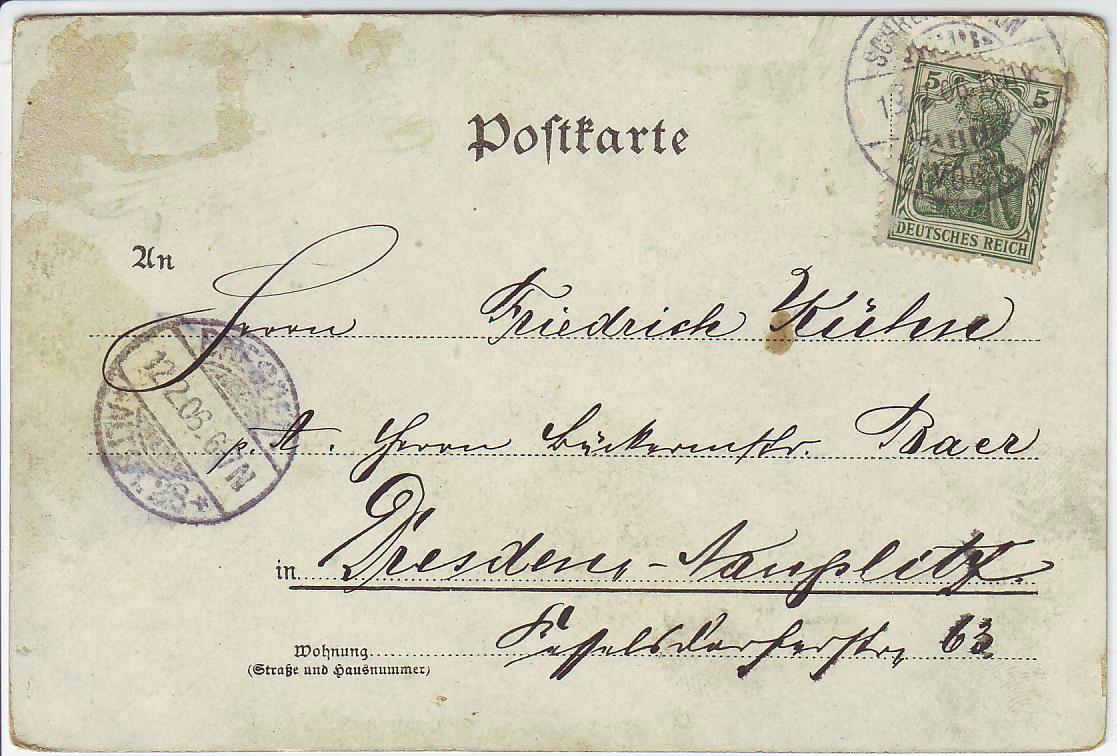 Postkarte
5 5
DEUTSCHES REICH
An
Herrn Friedrich Kühne
p. A. Herrn Bäckermstr. Baer
in Dresden-Naußlitz.
Kesselsdorferstr. 63
Wohnung
(Straße und Hausnummer)
DRESDEN
12.2.06. 6-7N
ALTST.